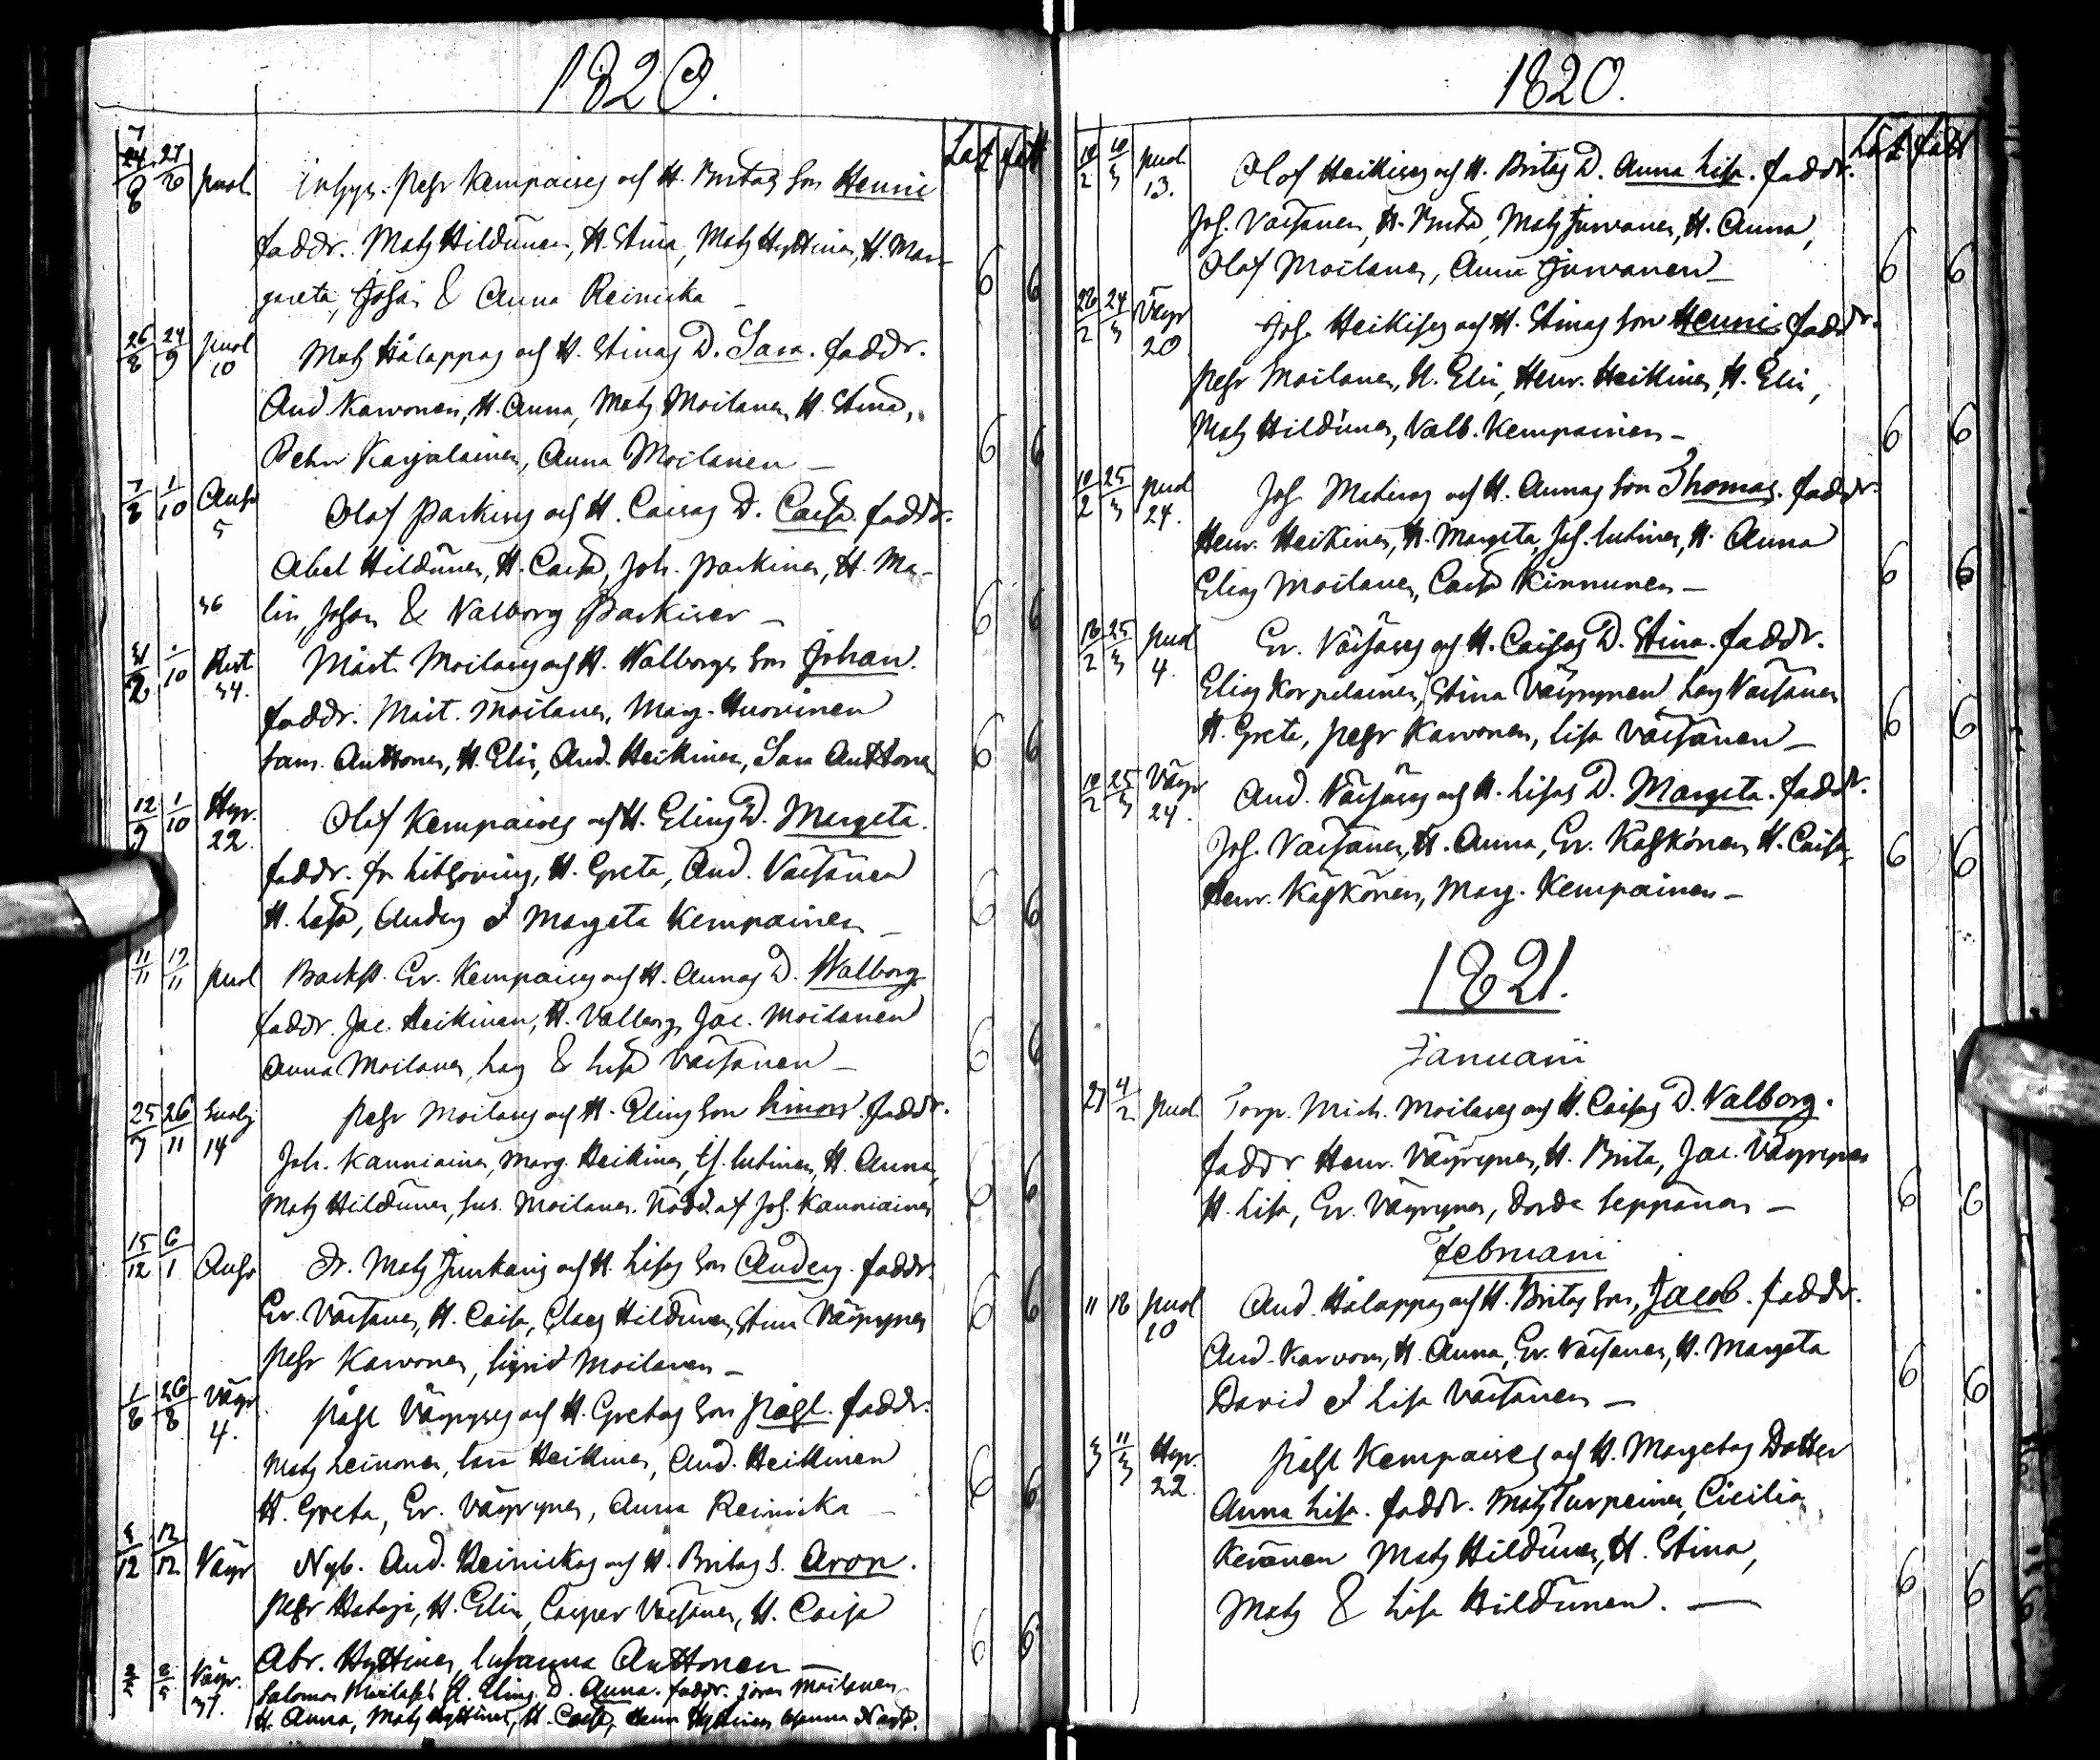 1820.
Last fatt
7 24/8 27/8 puol. Inhys. Pehr Kempaises och H. Britas Son Henric
faddr. Matz Hildunen, H. Stina, Matz Hyttinen, H. Mar-
greta, Johan & Anna Reinicka — 6 6
26/8 24/9 puol 10 Matz Hålappas och H. Stinas D. Sara. faddr.
And. Karvonen, H. Anna, Matz Moilanen H. Stina,
Pehr Karjalainen, Anna Moilanen — 6 6
7/8 1/10 Anho 5 Olof Parkises och H. Caisas D. Caisa. faddr.
Abel Hildunen, H. Caisa, Joh. Parkinen, H. Ma-
lin, Johan & Valborg Parkinen — 6 6
36
31/8 1/10 Rist 34. Mårt. Moilases och H. Walborgs Son Johan.
faddr. Mårt. Moilanen, Marg. Huovinen
Sam. Anttonen, H. Elin, And. Heikinen, Sara Anttonen 6 6
12/9 1/10 Hyr. 22. Olof Kempaises och H. Elins D. Margeta.
faddr. H. Greta, And. Väisänen
H. Lisa, Anders & Margeta Kempainen — 6 6
11/11 19/11 puol Backst. Er. Kempaises och H. Annas D. Walborg.
faddr. Jac. Heikinen, H. Valborg, Jac. Moilanen
Anna Moilanen, Lars & Lisa Väisänen — 6 6
25/9 26/11 14 Pehr Moilases och H. Elins Son Simon. faddr.
Joh. Kanniainen, Marg. Heikinen, H. Anna,
Matz Hildunen, Sus. Moilanen. Nödd. af Joh. Kanniainen 6 6
15/12 6/1 Anho Dr. Matz Juntunis och H. Lisas Son Anders. faddr.
Er. Väisänen, H. Caisa, Claes Hildunen, Stina Väyrynen
Pehr Karvonen, Sigrid Moilanen — 6 6
1/8 26/8 Väyr 4. Påhl Väyryses och H. Gretas Son Påhl. faddr.
Matz Leinonen, Sara Heikinen, And. Heikkinen
H. Greta, Er. Väyrynen, Anna Reinicka — 6 6
5/12 12/12 Väyr Nyb. And. Reinickas och H. Britas S. Aron.
Pehr Hataja, H. Elin, Casper Väisänen, H. Caisa
Abr. Hyttinen, Susanna Anttonen — 6 6
Väyr. 37. Salomon Moilases H. Elins D. Anna. faddr. Jöran Moilanen
H. Anna, Matz Hyttinen, H. Caisa, Henr. Hyttinen
1820.
Last fatt
10/2 10/3 puol. 13. Olof Heikises och H. Britas D. Anna Lisa. faddr.
Joh. Väisänen, H. Brita, Matz Juvvanen, H. Anna,
Olof Moilanen, Anna Juwanen — 6 6
26/2 24/3 Väyr 20 Joh. Heikises och H. Stinas Son Henric. faddr.
Pehr Moilanen, H. Elin, Henr. Heikkinen, H. Elin,
Matz Hildunen, Valb. Kempainen — 6 6
10/2 25/3 puol 24. Joh. Materos och H. Annas Son Thomas. faddr.
Henr. Heikinen, H. Margeta, Joh. Lutinen, H. Anna
Elias Moilanen, Caisa Kinnunen — 6 6
16/2 25/3 puol 4. Er. Väisäses och H. Caisas D. Stina. faddr.
Elias Korpelainen, Stina Väyrynen Lars Väisänen
H. Greta, Pehr Karvonen, Lisa Väisänen — 6 6
10/2 25/3 Väyr 24. And. Väisäses och H. Lisas D. Margeta. faddr.
Joh. Väisänen, H. Anna, Er. Käskönen H. Caisa,
Henr. Käskönen, Marg. Kempainen — 6 6
1821.
Januarii
27 4/2 puol. Torp. Mich. Moilases och H. Caisas D. Valborg.
faddr. Henr. Väyrynen, H. Brita, Jac. Väyrynen
H. Lisa, Er. Väyrynen, Dorde Seppänen — 6 6
Februarii
11 18 puol 10 And. Hålappas och H. Britas Son, Jacob. faddr.
And. Karvonen, H. Anna, Er. Väisänen, H. Margeta
David & Lisa Väisänen — 6 6
3 11/3 Hyr. 22. Påhl Kempaises och H. Margetas Dotter
Anna Lisa. faddr. Matz Turpeinen, Cicilia
Keränen Matz Hildunen, H. Stina,
Matz & Lisa Hildunen. — 6 6